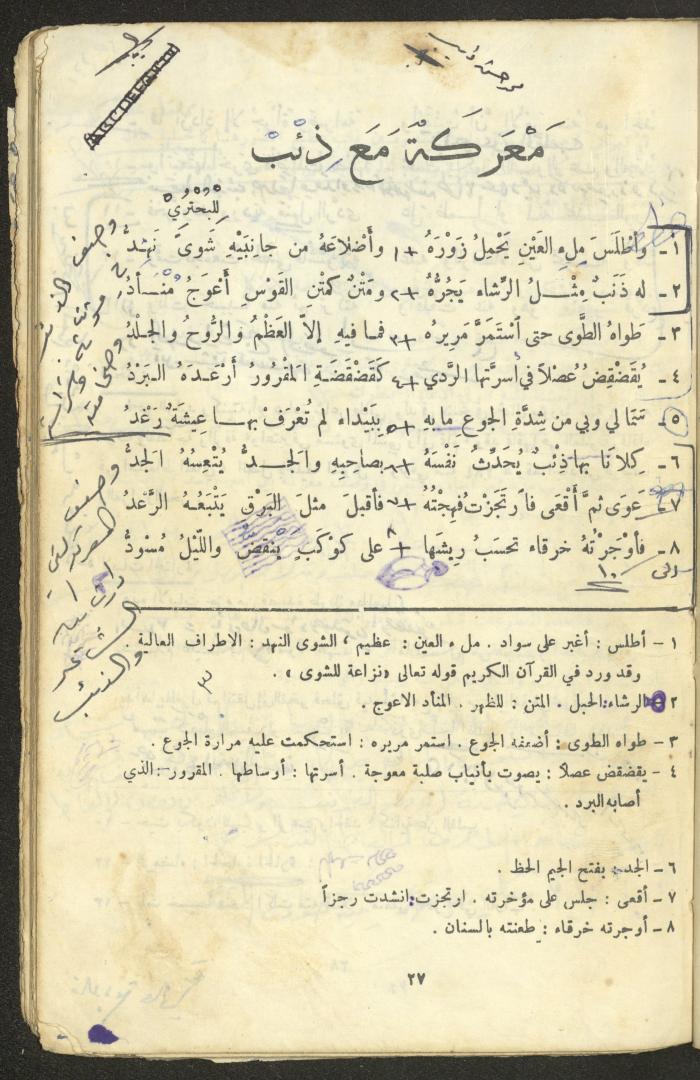 مَعْرَكَةٌ مَعَ ذِئْبْ
لِلبحتريّ
١ - وَأَطْلَسَ مِلءِ العَيْنِ يَحْمِلُ زَوْرَهُ +١ وأَضْلاعَهُ من جانِبَيْهِ شَوىً نَهْدُ
٢ - له ذَنَبٌ مِثْلُ الرَّشاء يَجُرُّهُ +٢ ومَتْنٌ كمَتْنِ القَوْسِ أَعْوَجُ مُنْأَدُ
٣ - طَواهُ الطَّوى حتى اَسْتَمَرَّ مَرِيرُه +٣ فما فيهِ إلاّ العَظْمُ والرُّوحُ والجِلْدُ
٤ - يُقَضْقِضُ عُصْلاً في أَسرَّتها الرَّدي +٤ كَقَضْقَضَةِ المَقْرُورِ أَرْعَدَهُ البَرْدُ
٥ - سَمَا لي وبي من شِدَّةِ الجوعِ ما بهِ +٥ بِبَيْداء لم تُعْرَفْ بها عِيشَةٌ رَغْدُ
٦ - كِلانَا بها ذِئْبٌ يُحَدِّثُ نَفْسَهُ +٦ بصاحِبِهِ والجَدُّ يُتْعِسُهُ الجَدُّ
٧ - عَوَى ثمَّ أَقْعَى فاَرتَجَزْتُ فهِجْتُهُ +٧ فأقبلَ مثلَ البَرْقِ يَتْبَعُهُ الرَّعْدُ
٨ - فأوْجَرْتُهُ خرقاء تحسَبُ رِيشَها +٨ على كوْكَبٍ يَنْقَضُّ واللّيْلُ مُسْوَدُّ
١ - أطلس : أغبر على سواد . ملء العين : عظيم ، الشوى النهد : الاطراف العالية
وقد ورد في القرآن الكريم قوله تعالى «نزاعة للشوى» .
٢ - الرشاء : الحبل . المتن : للظهر . المنأد الاعوج .
٣ - طواه الطوى : أضعفه الجوع . استمر مريره : استحكمت عليه مرارة الجوع .
٤ - يقضقض عصلا : يصوت بأنياب صلبة معوجة . أسرتها : أوساطها . المقرور : الذي
أصابه البرد .
٦ - الجد : بفتح الجيم الحظ .
٧ - أقعى : جلس على مؤخرته . ارتجزت : انشدت رجزاً
٨ - أوجرته خرقاء : طعنته بالسنان .
٢٧